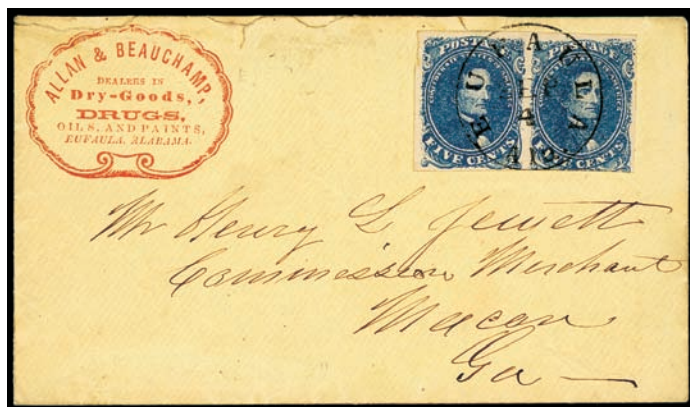 ALLAN & BEAUCHAMP,
DEALERS IN
Dry-Goods,
DRUGS,
OILS, AND PAINTS,
EUFAULA, ALABAMA.
POSTAGE POSTAGE
FIVE CENTS FIVE CENTS
EUFAULA
Mr Henry L Jewett
Commission Merchant
Macon
Ga